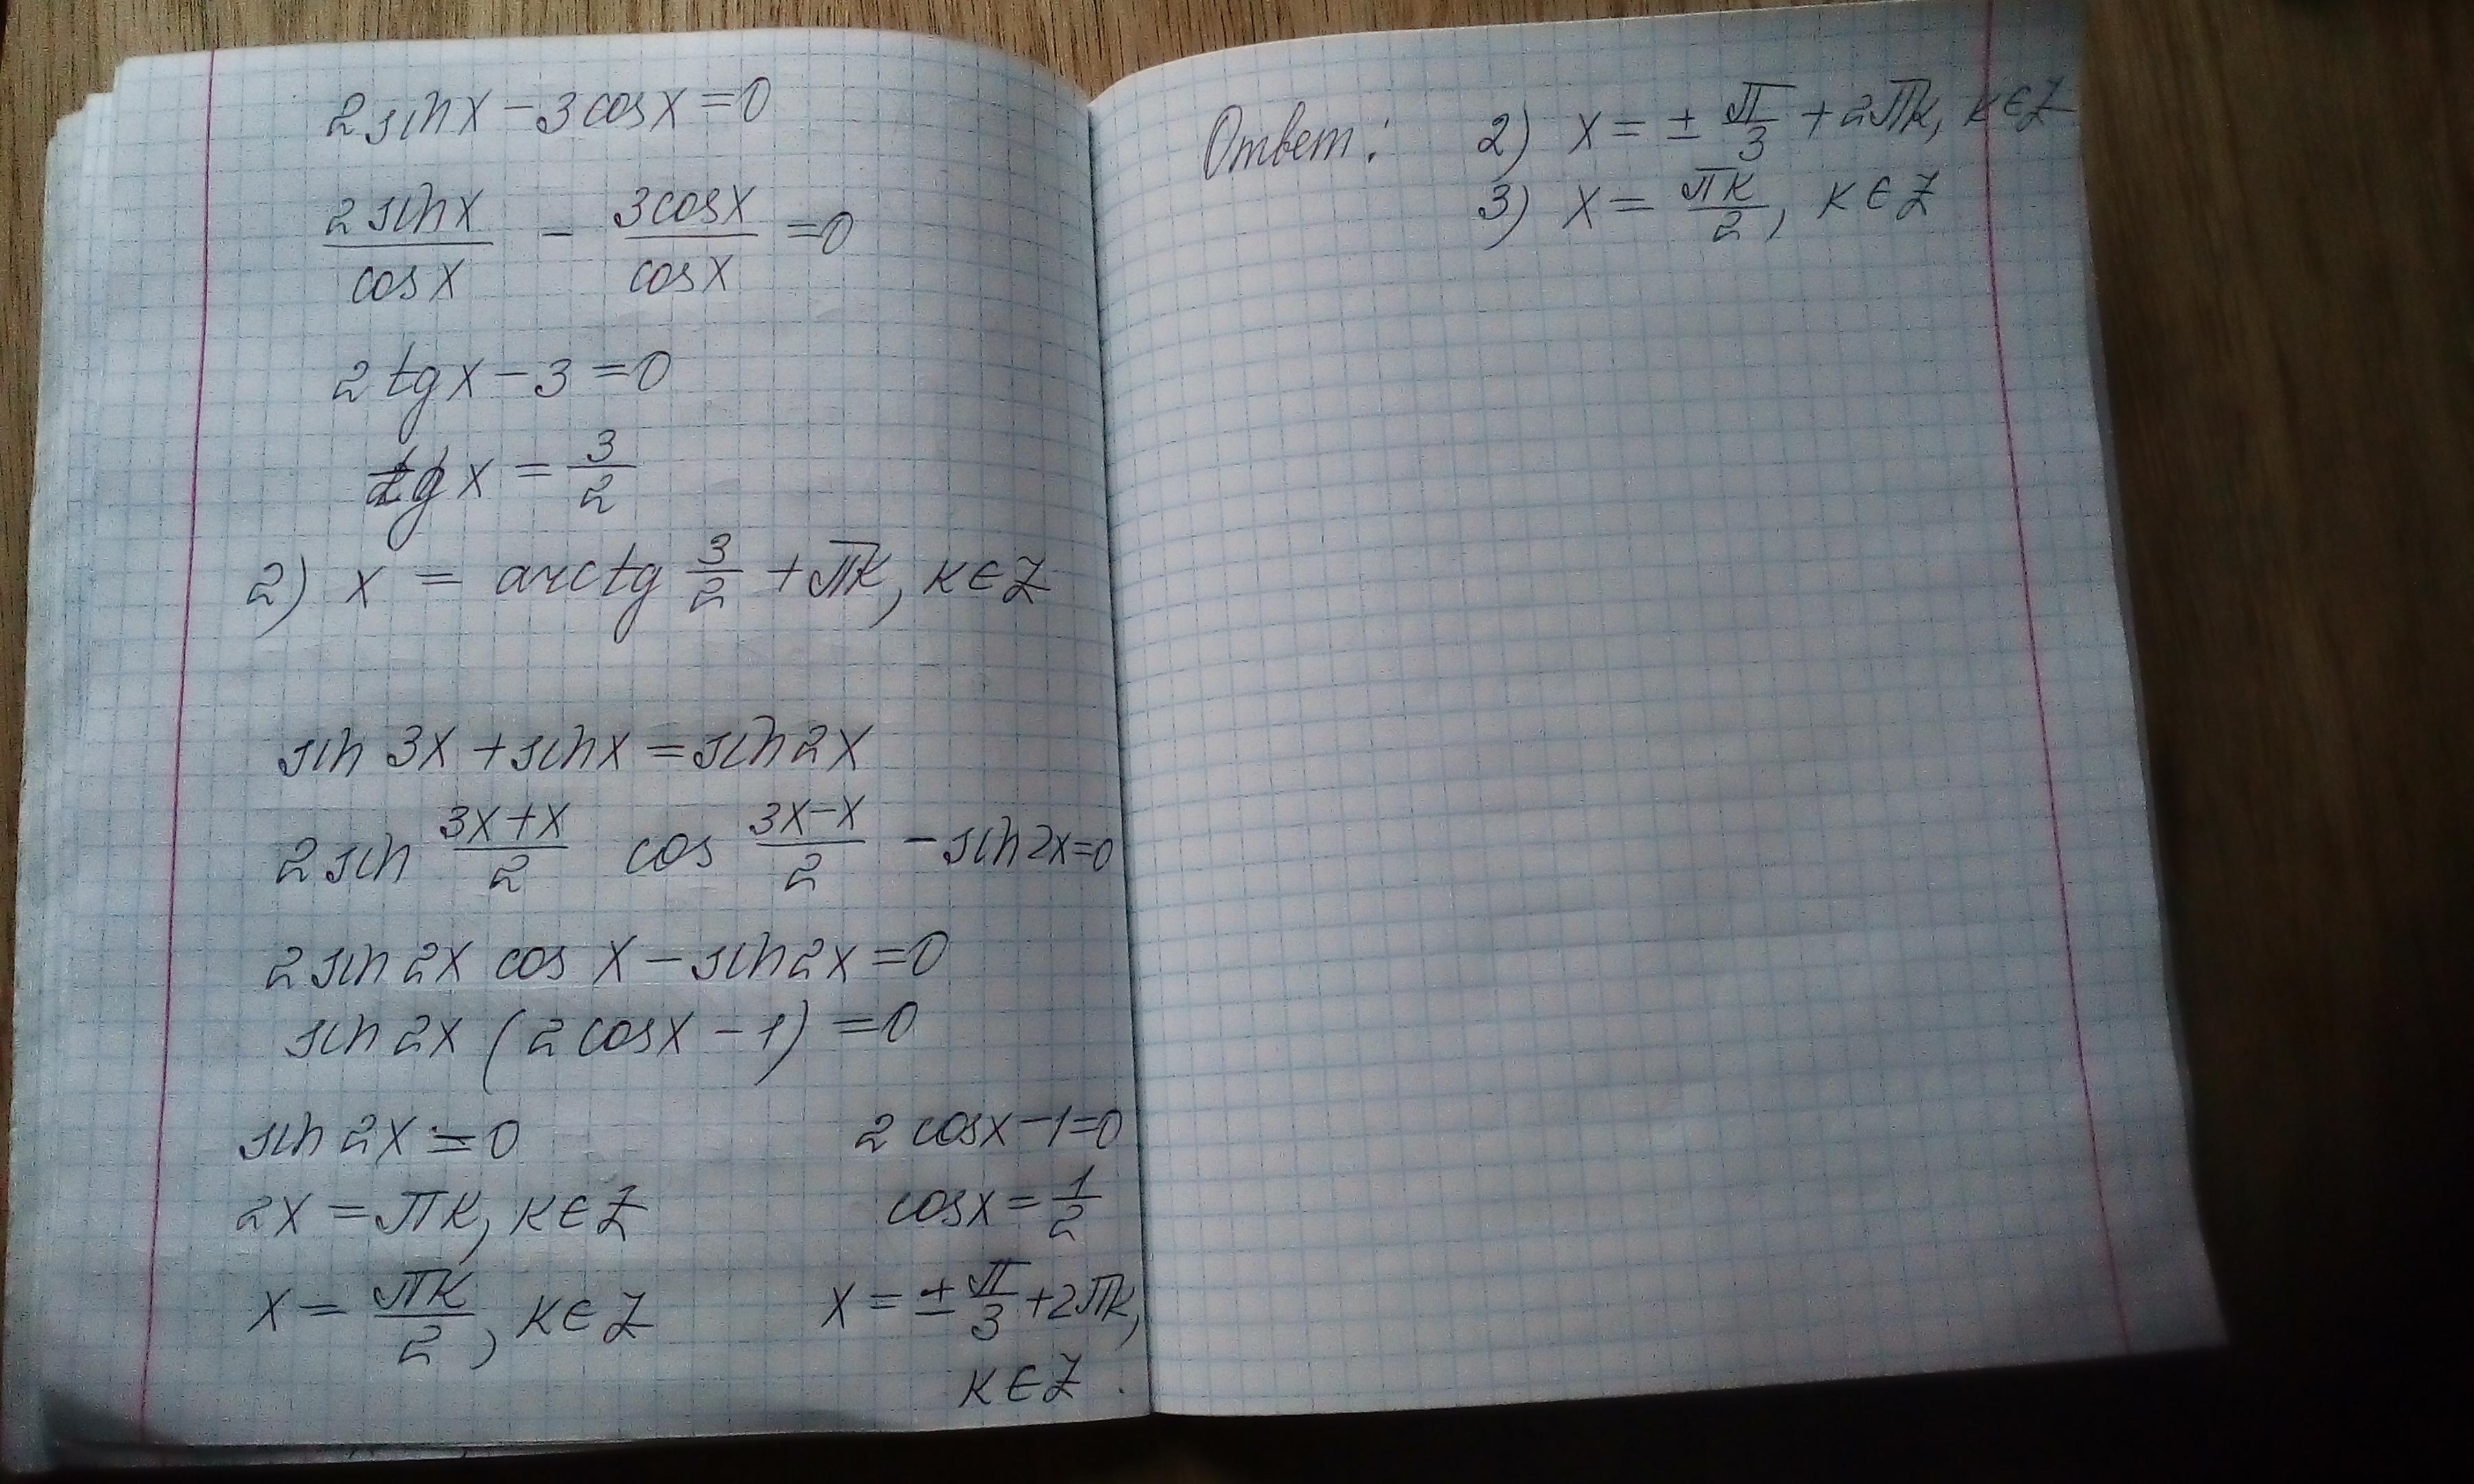 2 sin x − 3 cos x = 0
2 sin x / cos x − 3 cos x / cos x = 0
2 tg x − 3 = 0
tg x = 3/2
2) x = arctg 3/2 + πк, к ∈ Z
sin 3x + sin x = sin 2x
2 sin (3x+x)/2 cos (3x−x)/2 − sin 2x = 0
2 sin 2x cos x − sin 2x = 0
sin 2x (2 cos x − 1) = 0
sin 2x = 0
2x = πк, к ∈ Z
x = πк/2, к ∈ Z
2 cos x − 1 = 0
cos x = 1/2
x = ± π/3 + 2πк,
к ∈ Z.
Ответ: 2) x = ± π/3 + 2πк, к ∈ Z
3) x = πк/2, к ∈ Z